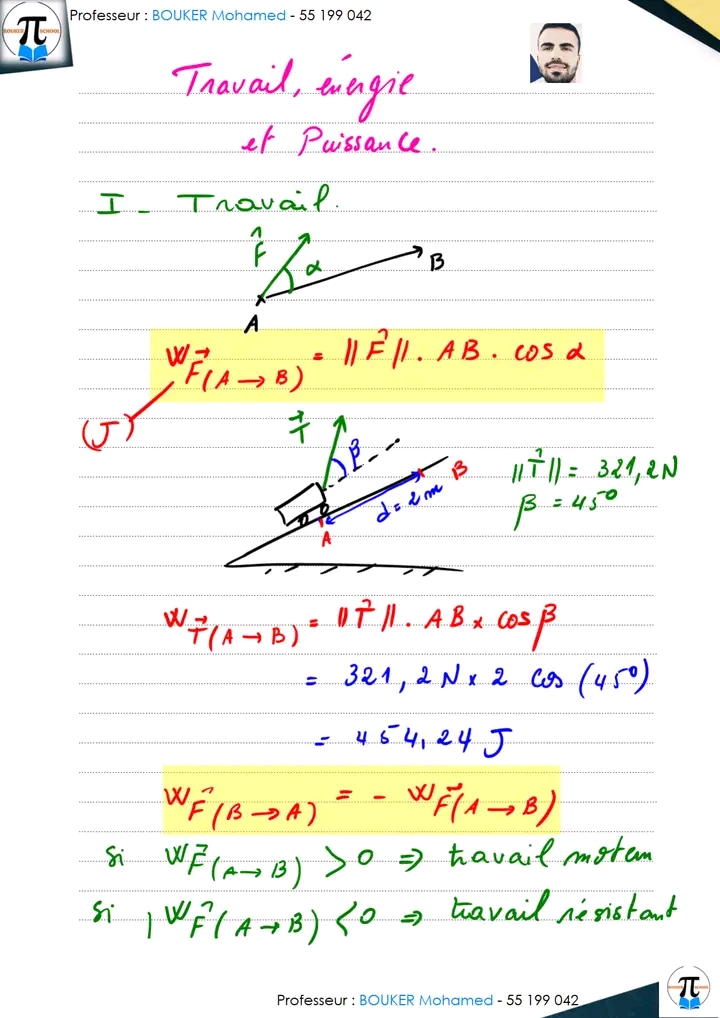 Professeur : BOUKER Mohamed - 55 199 042
BOUKER SCHOOL
π
Travail, énergie
et Puissance.
I - Travail.
F⃗
α
B
A
W F⃗(A → B) = ||F⃗|| . AB . cos α
(J)
T⃗
β
B
||T⃗|| = 321,2N
d = 2m
β = 45°
A
W T⃗(A → B) = ||T⃗|| . AB x cos β
= 321,2 N x 2 cos (45°)
= 454,24 J
W F⃗(B → A) = - W F⃗(A → B)
si W F⃗(A → B) > 0 => travail moteur
si W F⃗(A → B) < 0 => travail résistant
Professeur : BOUKER Mohamed - 55 199 042
π